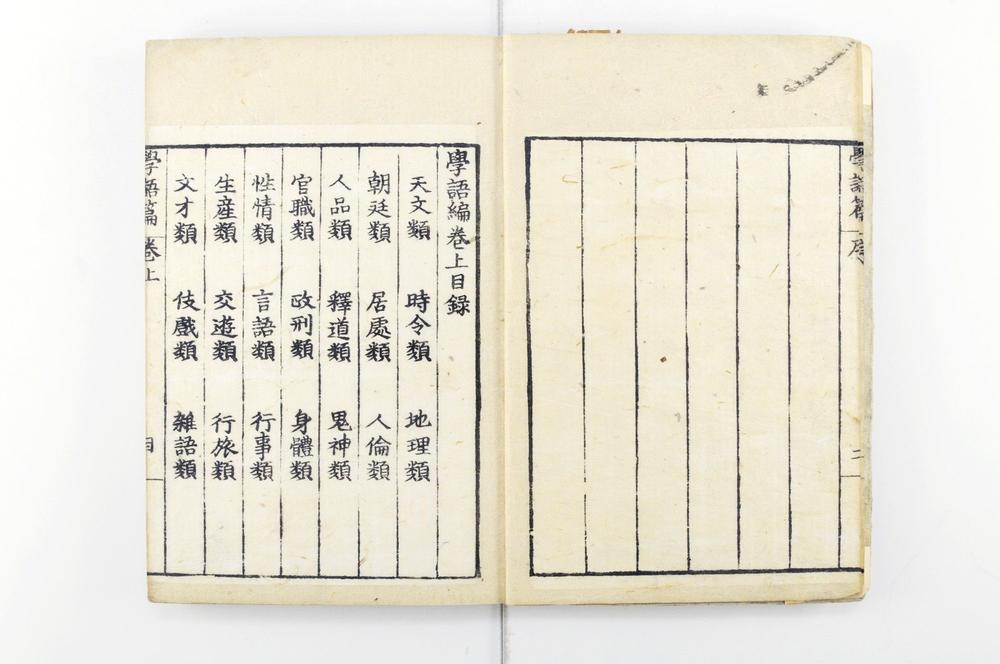 學語篇 序
二
學語編卷上目錄
天文類 時令類 地理類
朝廷類 居處類 人倫類
人品類 釋道類 鬼神類
官職類 政刑類 身體類
性情類 言語類 行事類
生産類 交遊類 行旅類
文才類 伎戲類 雜語類
學語篇 卷上
目 一